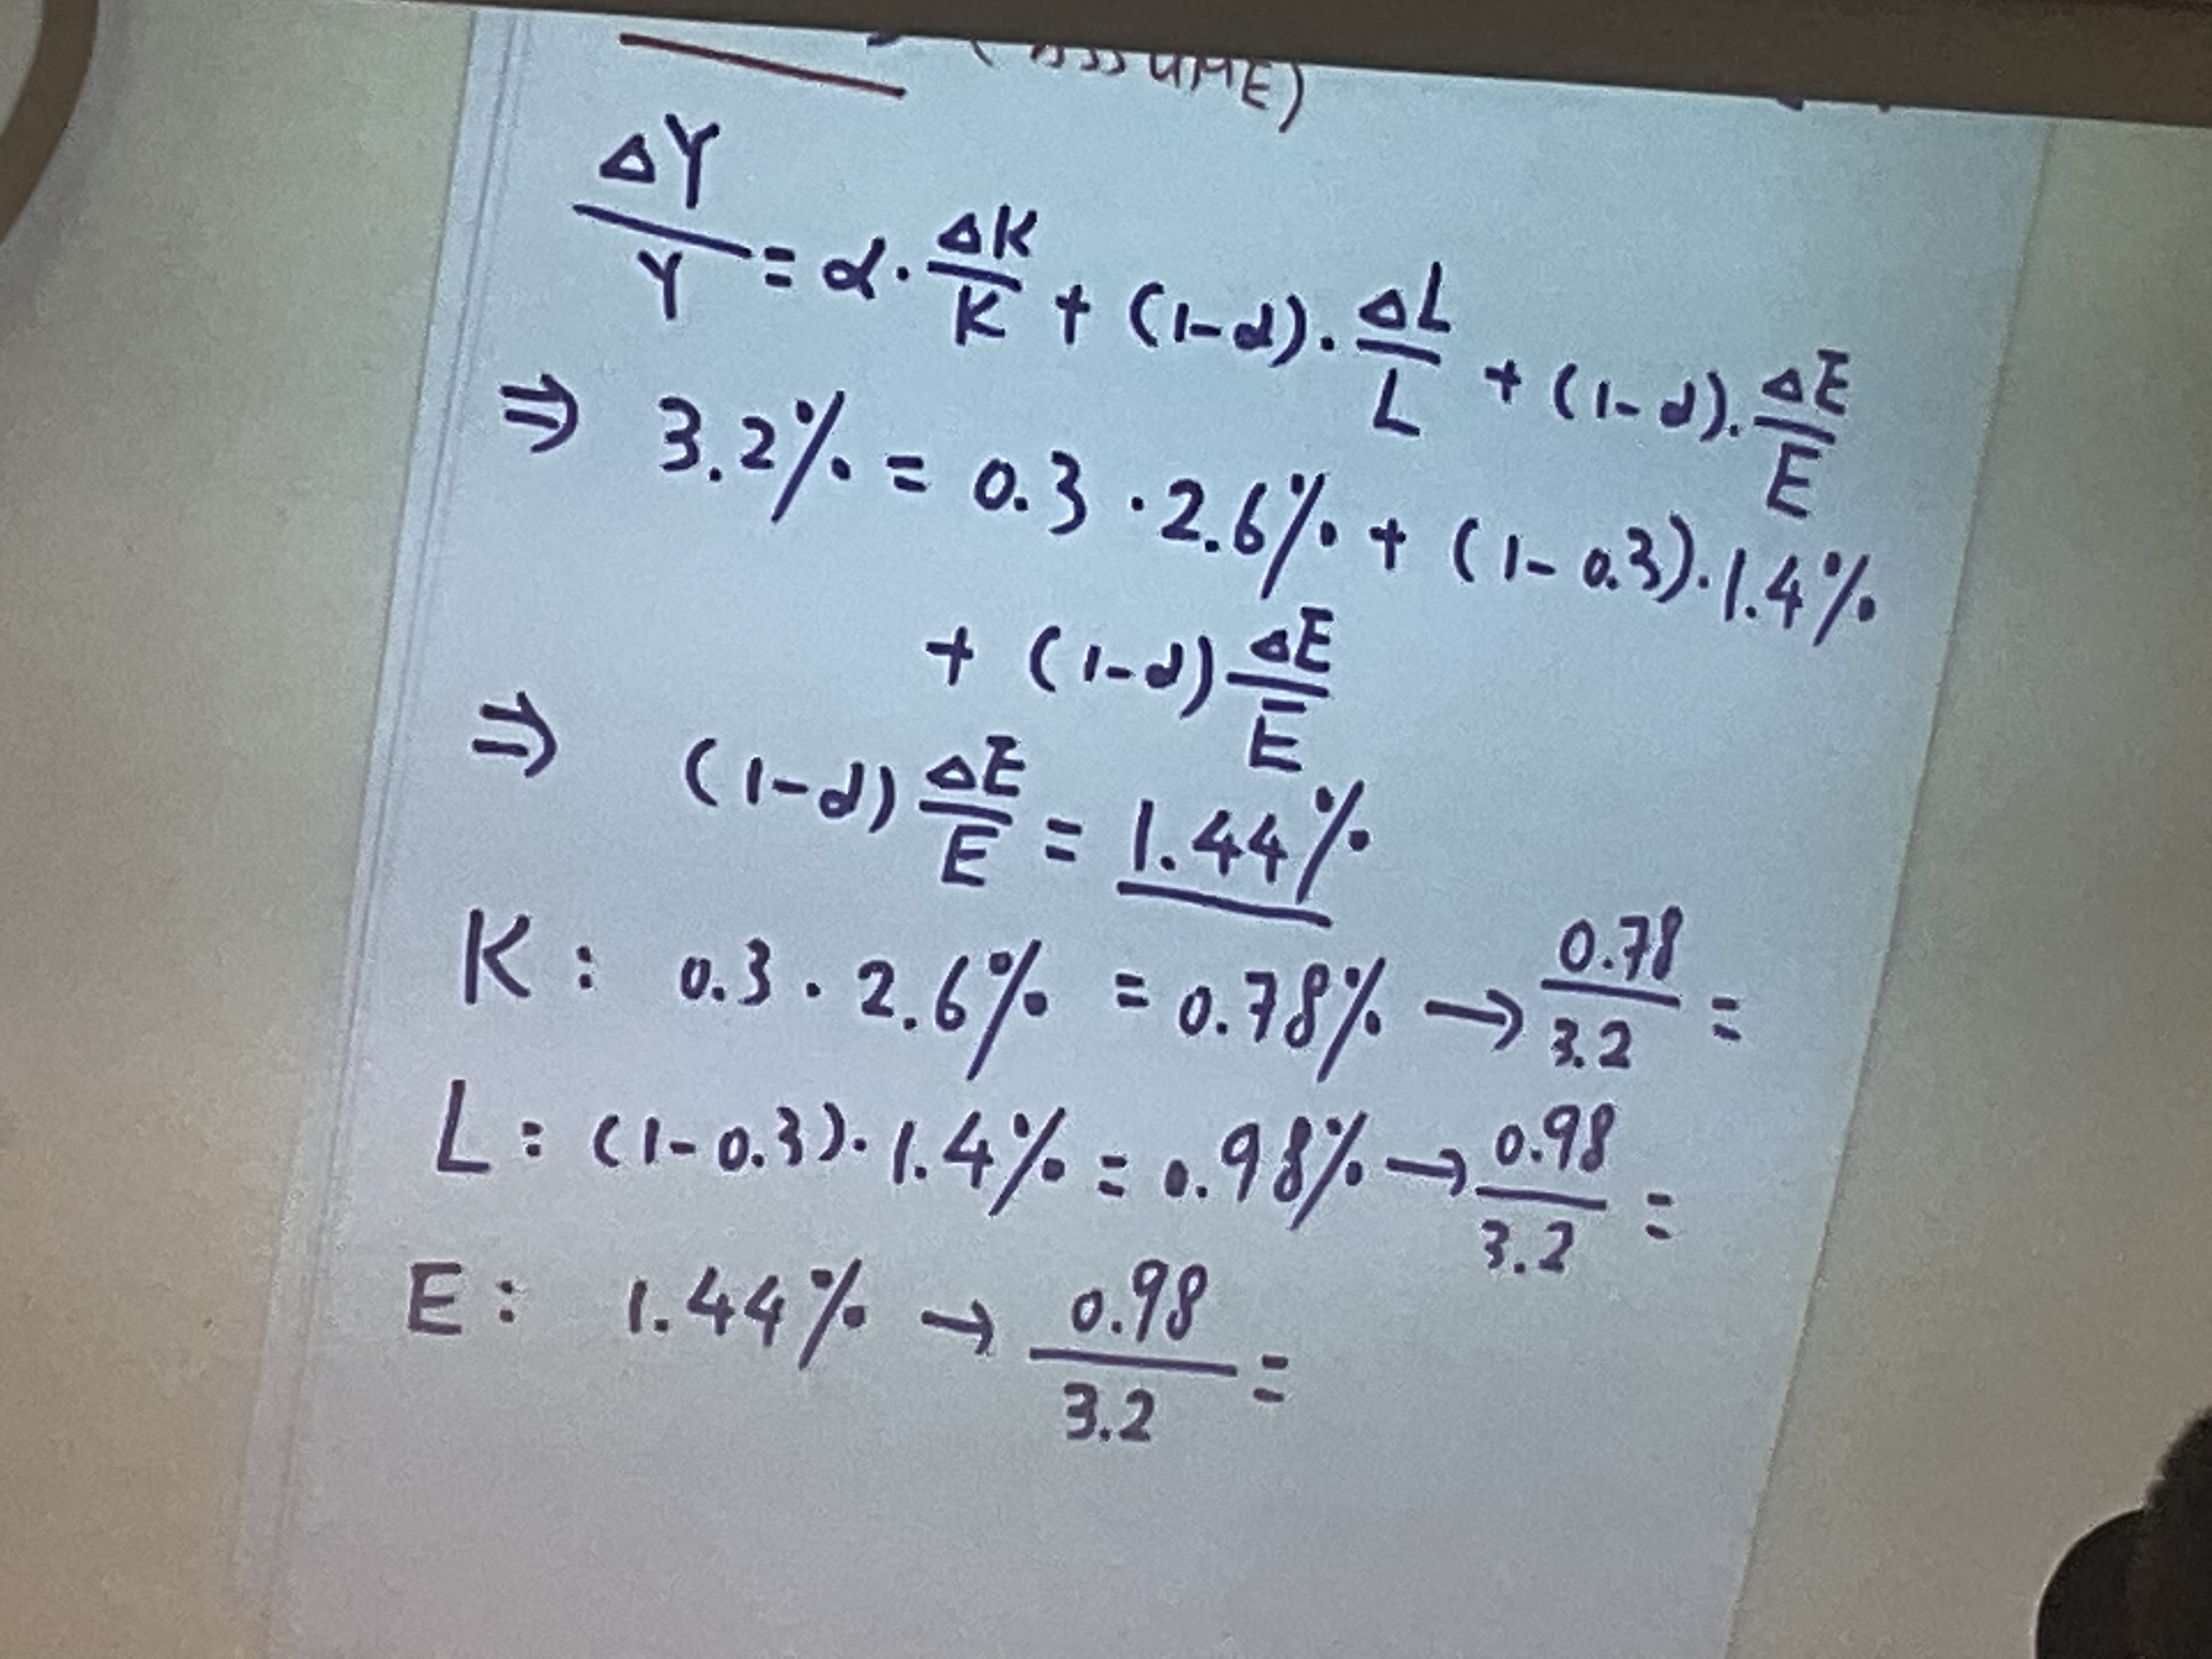 (ASSUME)
ΔY/Y = α · ΔK/K + (1-α) · ΔL/L + (1-α) · ΔE/E
⇒ 3.2% = 0.3 · 2.6% + (1-0.3) · 1.4%
+ (1-α) ΔE/E
⇒ (1-α) ΔE/E = 1.44%
K : 0.3 · 2.6% = 0.78% → 0.78/3.2 =
L : (1-0.3) · 1.4% = 0.98% → 0.98/3.2 =
E : 1.44% → 0.98/3.2 =